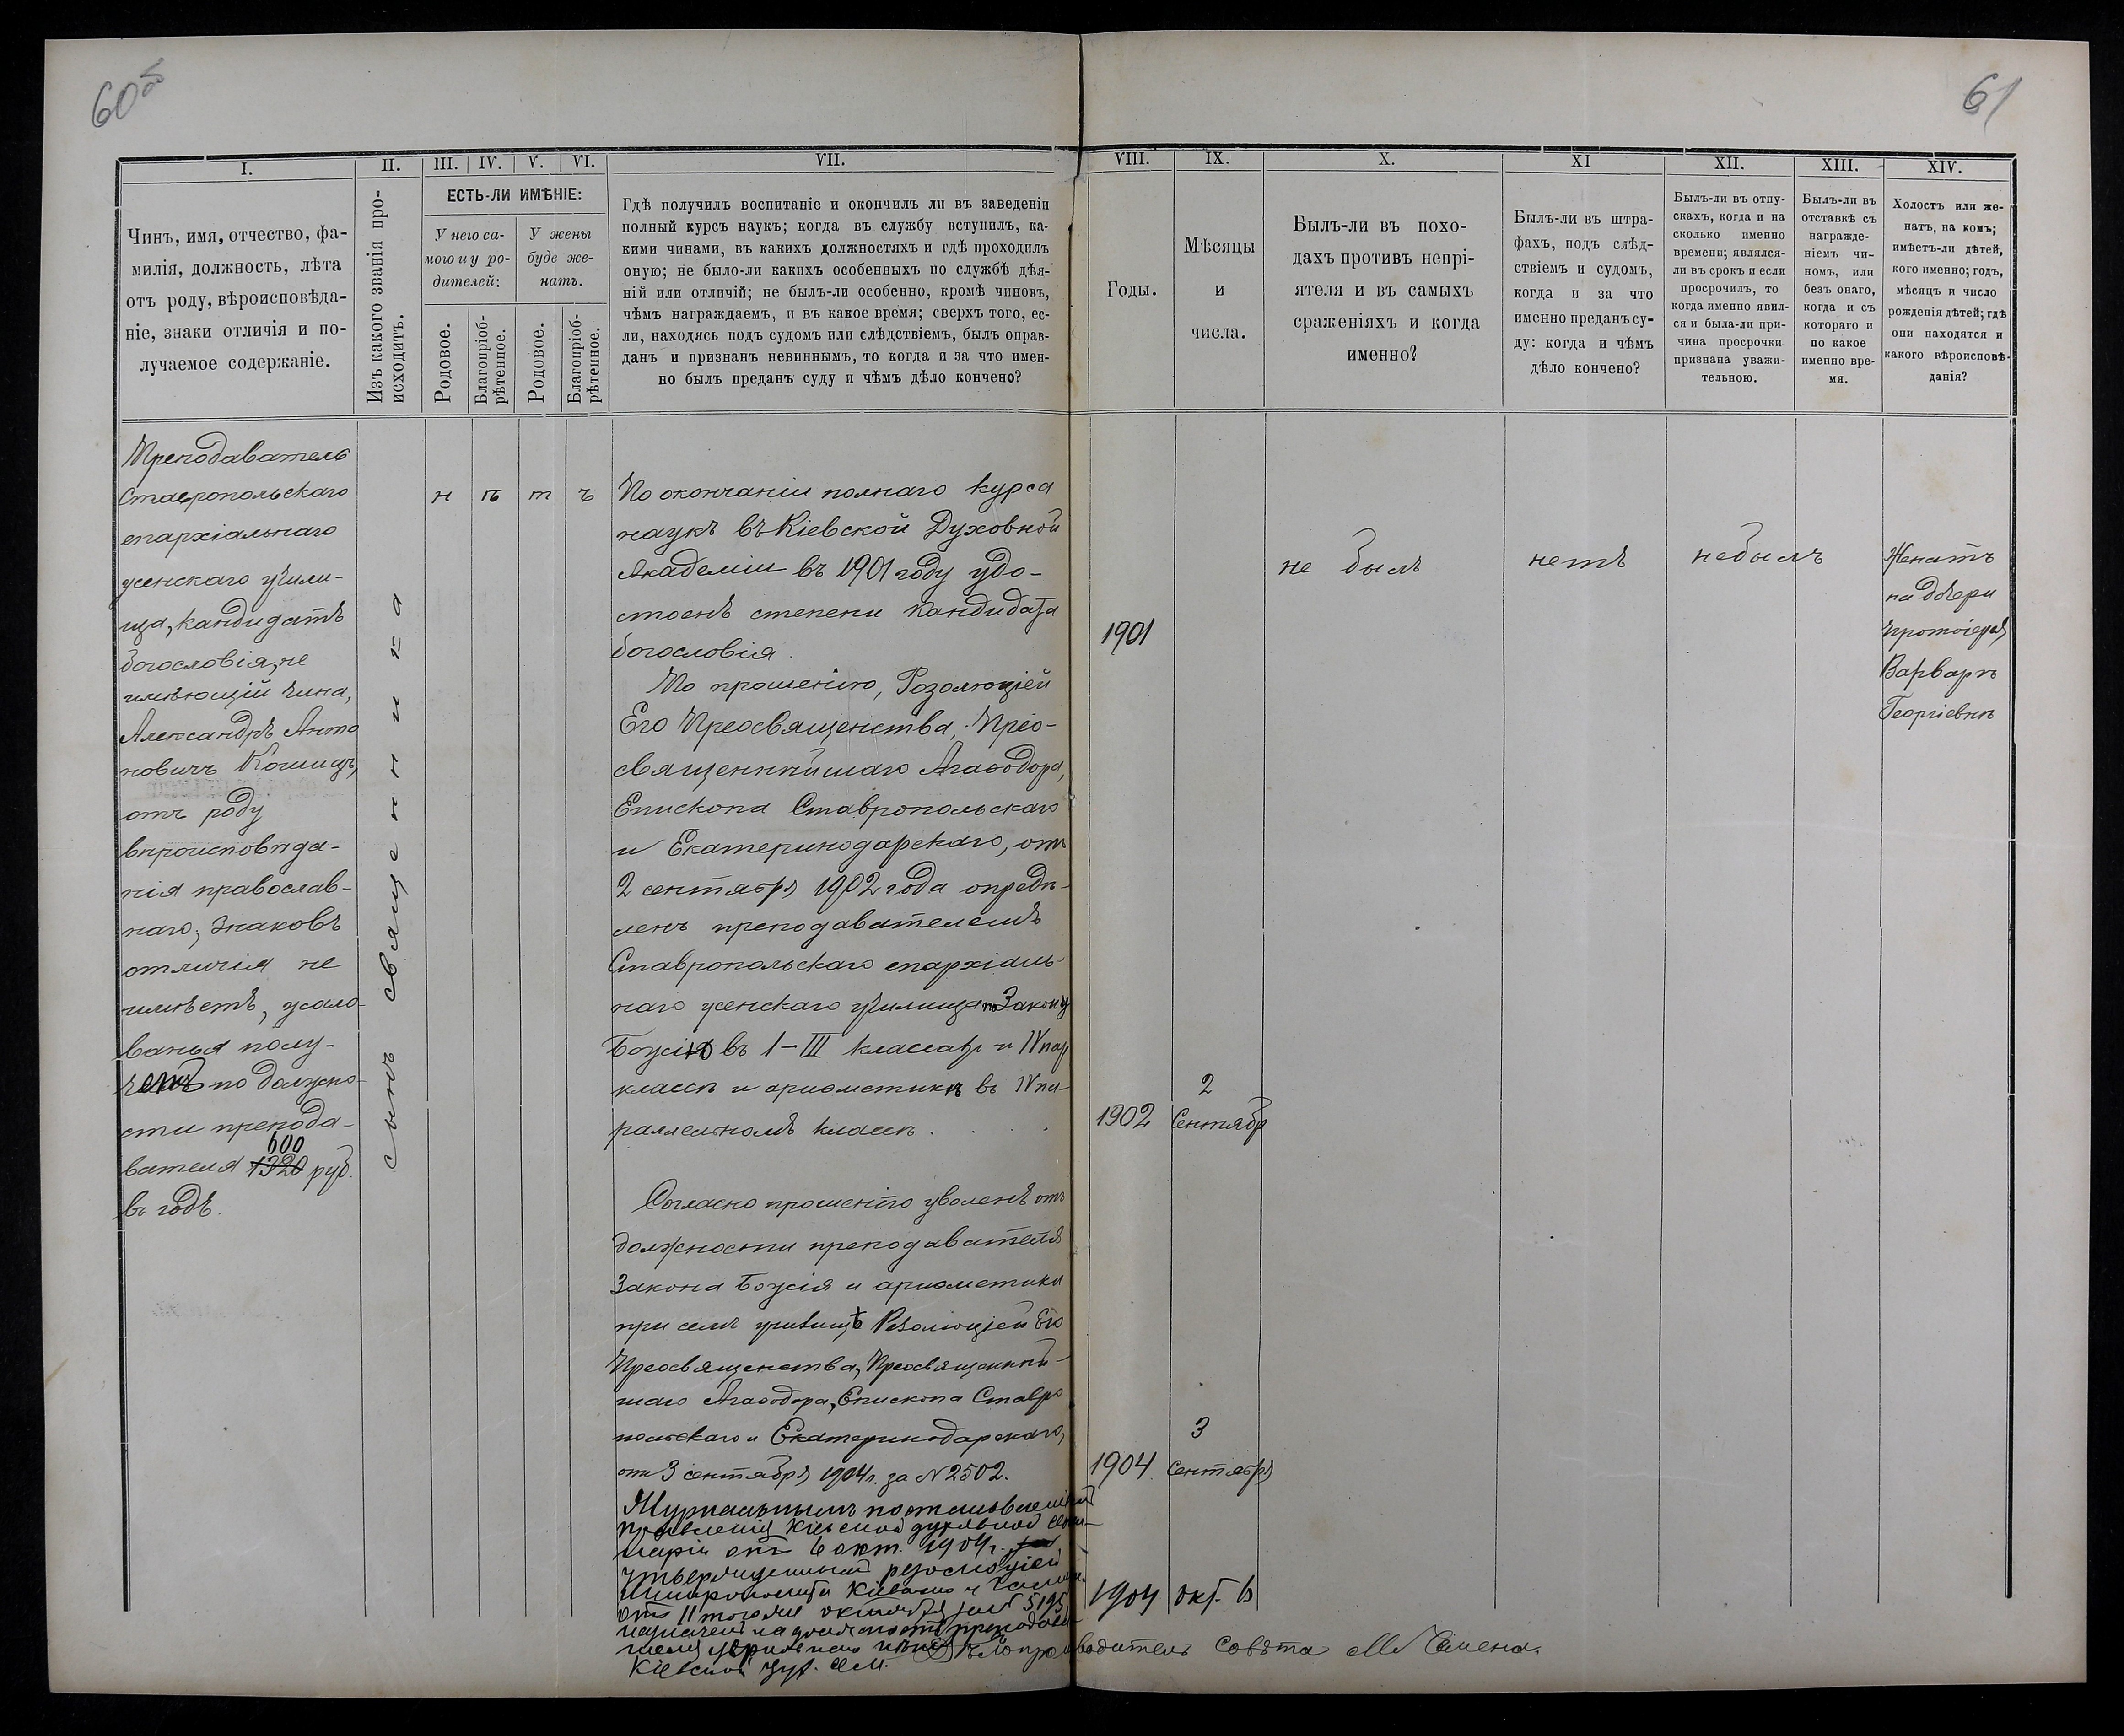 60об
61
I.
II.
III.
IV.
V.
VI.
VII.
VIII.
IX.
X.
XI
XII.
XIII.
XIV.
Чинъ, имя, отчество, фа-
милія, должность, лѣта
отъ роду, вѣроисповѣда-
ніе, знаки отличія и по-
лучаемое содержаніе.
Изъ какого званія про-
исходитъ.
ЕСТЬ-ЛИ ИМѢНІЕ:
У него са-
мого и у ро-
дителей:
У жены
буде же-
натъ.
Родовое.
Благопріоб-
рѣтенное.
Родовое.
Благопріоб-
рѣтенное.
Гдѣ получилъ воспитаніе и окончилъ ли въ заведеніи
полный курсъ наукъ; когда въ службу вступилъ, ка-
кими чинами, въ какихъ должностяхъ и гдѣ проходилъ
оную; не было-ли какихъ особенныхъ по службѣ дѣя-
ній или отличій; не былъ-ли особенно, кромѣ чиновъ,
чѣмъ награждаемъ, и въ какое время; сверхъ того, ес-
ли, находясь подъ судомъ или слѣдствіемъ, былъ оправ-
данъ и признанъ невиннымъ, то когда и за что имен-
но былъ преданъ суду и чѣмъ дѣло кончено?
Годы.
Мѣсяцы
и
числа.
Былъ-ли въ похо-
дахъ противъ непрі-
ятеля и въ самыхъ
сраженіяхъ и когда
именно?
Былъ-ли въ штра-
фахъ, подъ слѣд-
ствіемъ и судомъ,
когда и за что
именно преданъ су-
ду: когда и чѣмъ
дѣло кончено?
Былъ-ли въ отпу-
скахъ, когда и на
сколько именно
времени; являлся-
ли въ срокъ и если
просрочилъ, то
когда именно явил-
ся и была-ли при-
чина просрочки
признана уважи-
тельною.
Былъ-ли въ
отставкѣ съ
награжде-
ніемъ чи-
номъ, или
безъ онаго,
когда и съ
котораго и
по какое
именно вре-
мя.
Холостъ или же-
натъ, на комъ;
имѣетъ-ли дѣтей,
кого именно; годъ,
мѣсяцъ и число
рожденія дѣтей; гдѣ
они находятся и
какого вѣроисповѣ-
данія?
Преподаватель
Ставропольскаго
епархіальнаго
женскаго учили-
ща, кандидатъ
богословія, не
имѣющій чина,
Александръ Анто
новичъ Кошицъ,
отъ роду
вѣроисповѣда-
нія православ-
наго, знаковъ
отличія не
имѣетъ, жало-
ванья полу-
чаетъ по должно-
сти препода-
600
вателя 1320 руб.
въ годъ.
сынъ священника
н ѣ т ъ
По окончаніи полнаго курса
наукъ въ Кіевской Духовной
Академіи въ 1901 году удо-
стоенъ степени кандидата
богословія.
1901
По прошенію, Резолюціей
Его Преосвященства, Прео-
священнѣйшаго Агаѳодора,
Епископа Ставропольскаго
и Екатеринодарскаго, отъ
2 сентября 1902 года опредѣ-
ленъ преподавателемъ
Ставропольскаго епархіаль-
наго женскаго училища по Закону
Божію въ I–III классахъ и IV пар
классѣ и ариѳметикѣ въ IV па-
раллельномъ классѣ.
1902
2
Сентябр
Согласно прошенію уволенъ отъ
должности преподавателя
Закона Божія и ариѳметики
при семъ училищѣ Резолюціей Его
Преосвященства, Преосвященнѣй-
шаго Агаѳодора, Епископа Ставро
польскаго и Екатеринодарскаго,
отъ 3 сентября 1904 г. за № 2502.
1904
3
сентября
Журнальнымъ постановленіемъ
правленія Кіевской духовной семи-
наріи отъ 6 окт. 1904 г.
утвержденный резолюціей
Митрополита Кіевскаго и Галиц.
отъ 11 того же октября за № 5195
назначенъ на должность преподава-
теля церковнаго пѣнія
Кіевской дух. сем.
1904 окт. 6
Дѣлопроизводитель Совѣта
не былъ
нетъ
не былъ
Женатъ
на дочери
протоіерея
Варварѣ
Георгіевнѣ